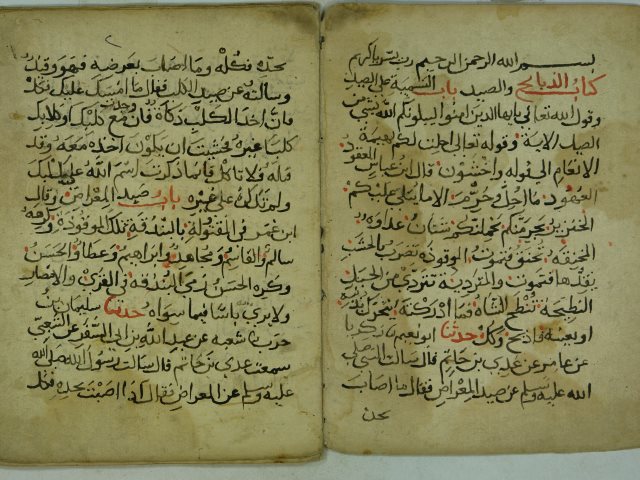 بسم الله الرحمن الرحيم رب يسر يا كريم
كتاب الذبائح والصيد باب التسمية على الصيد
وقول الله تعالى يايها الذين امنوا ليبلونكم الله بشي من
الصيد الاية وقوله تعالى احلت لكم بهيمة
الانعام الى قوله واخشون قال ابن عباس العقود
العهود ما احل وحرم الا ما يتلى عليكم
الخنزير يجرمنكم يحملنكم شنان عداوة
المنخنقة تخنق فتموت الموقوذة تضرب بالخشب
يوقذها فتموت والمتردية تتردى من الجبل
النطيحة تنطح الشاة فما ادركته يتحرك بذنبه
او بعينه فاذبح وكل حدثنا ابو نعيم زكريا
عن عامر عن عدي بن حاتم قال سالت النبي صلى
الله عليه وسلم عن صيد المعراض فقال ما اصاب
بحده
بحده فكله وما اصاب بعرضه فهو وقيذ
وسالته عن صيد الكلب فقال ما امسك عليك فكل
فان اخذ الكلب ذكاة فان وجدت مع كلبك او كلابك
كلبا غيره فخشيت ان يكون اخذه معه وقد
قتله فلا تاكل فانما ذكرت اسم الله على كلبك
ولم تذكره على غيره باب صيد المعراض وقال
ابن عمر في المقتولة بالبندقة تلك الموقوذة وكرهه
سالم والقاسم ومجاهد وابراهيم وعطا والحسن
وكره الحسن رمي البندقة في القرى والامصار
ولا يرى باسا فيما سواه حدثنا سليمان بن
حرب شعبة عن عبد الله بن ابي السفر عن الشعبي
سمعت عدي بن حاتم قال سالت رسول الله صلى الله
عليه وسلم عن المعراض فقال اذا اصبت بحده فكل